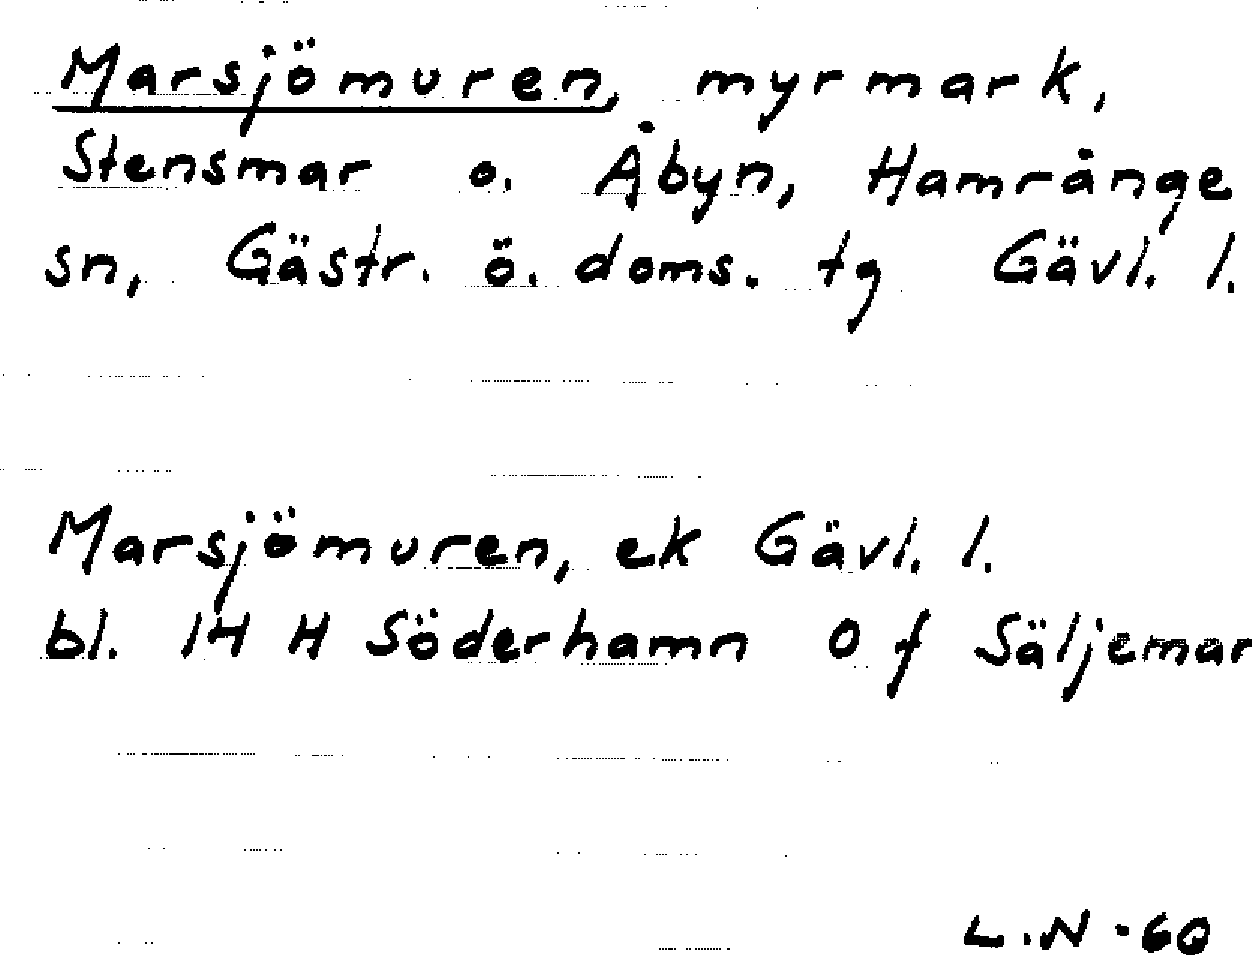 Marsjömuren, myrmark,
Stensmar o. Åbyn, Hamrånge
sn, Gästr. ö. doms. tg Gävl. l.
Marsjömuren, ek Gävl. l.
bl. 14 H Söderhamn 0 f Säljemar
L.N -60